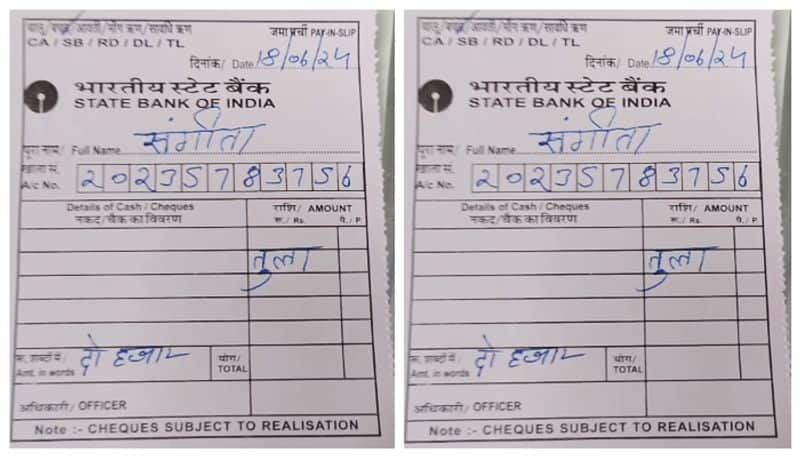 चालू/बचत/आवर्ती/माँग ऋण/सावधि ऋण जमा पर्ची PAY-IN-SLIP
CA / SB / RD / DL / TL
दिनांक/ Date 18/06/24
भारतीय स्टेट बैंक
STATE BANK OF INDIA
पूरा नाम/ Full Name संगीता
खाता सं.
A/c No. 20235783756
Details of Cash / Cheques राशि/ AMOUNT
नकद/चैक का विवरण रू./ Rs. पै./ P.
तुला
रू. शब्दों में/ दो हजार योग/
Amt. in words TOTAL
अधिकारी/ OFFICER
Note :- CHEQUES SUBJECT TO REALISATION
चालू/बचत/आवर्ती/माँग ऋण/सावधि ऋण जमा पर्ची PAY-IN-SLIP
CA / SB / RD / DL / TL
दिनांक/ Date 18/06/24
भारतीय स्टेट बैंक
STATE BANK OF INDIA
पूरा नाम/ Full Name संगीता
खाता सं.
A/c No. 20235783756
Details of Cash / Cheques राशि/ AMOUNT
नकद/चैक का विवरण रू./ Rs. पै./ P
तुला
रू. शब्दों में/ दो हजार योग/
Amt. in words TOTAL
अधिकारी/ OFFICER
Note :- CHEQUES SUBJECT TO REALISATION